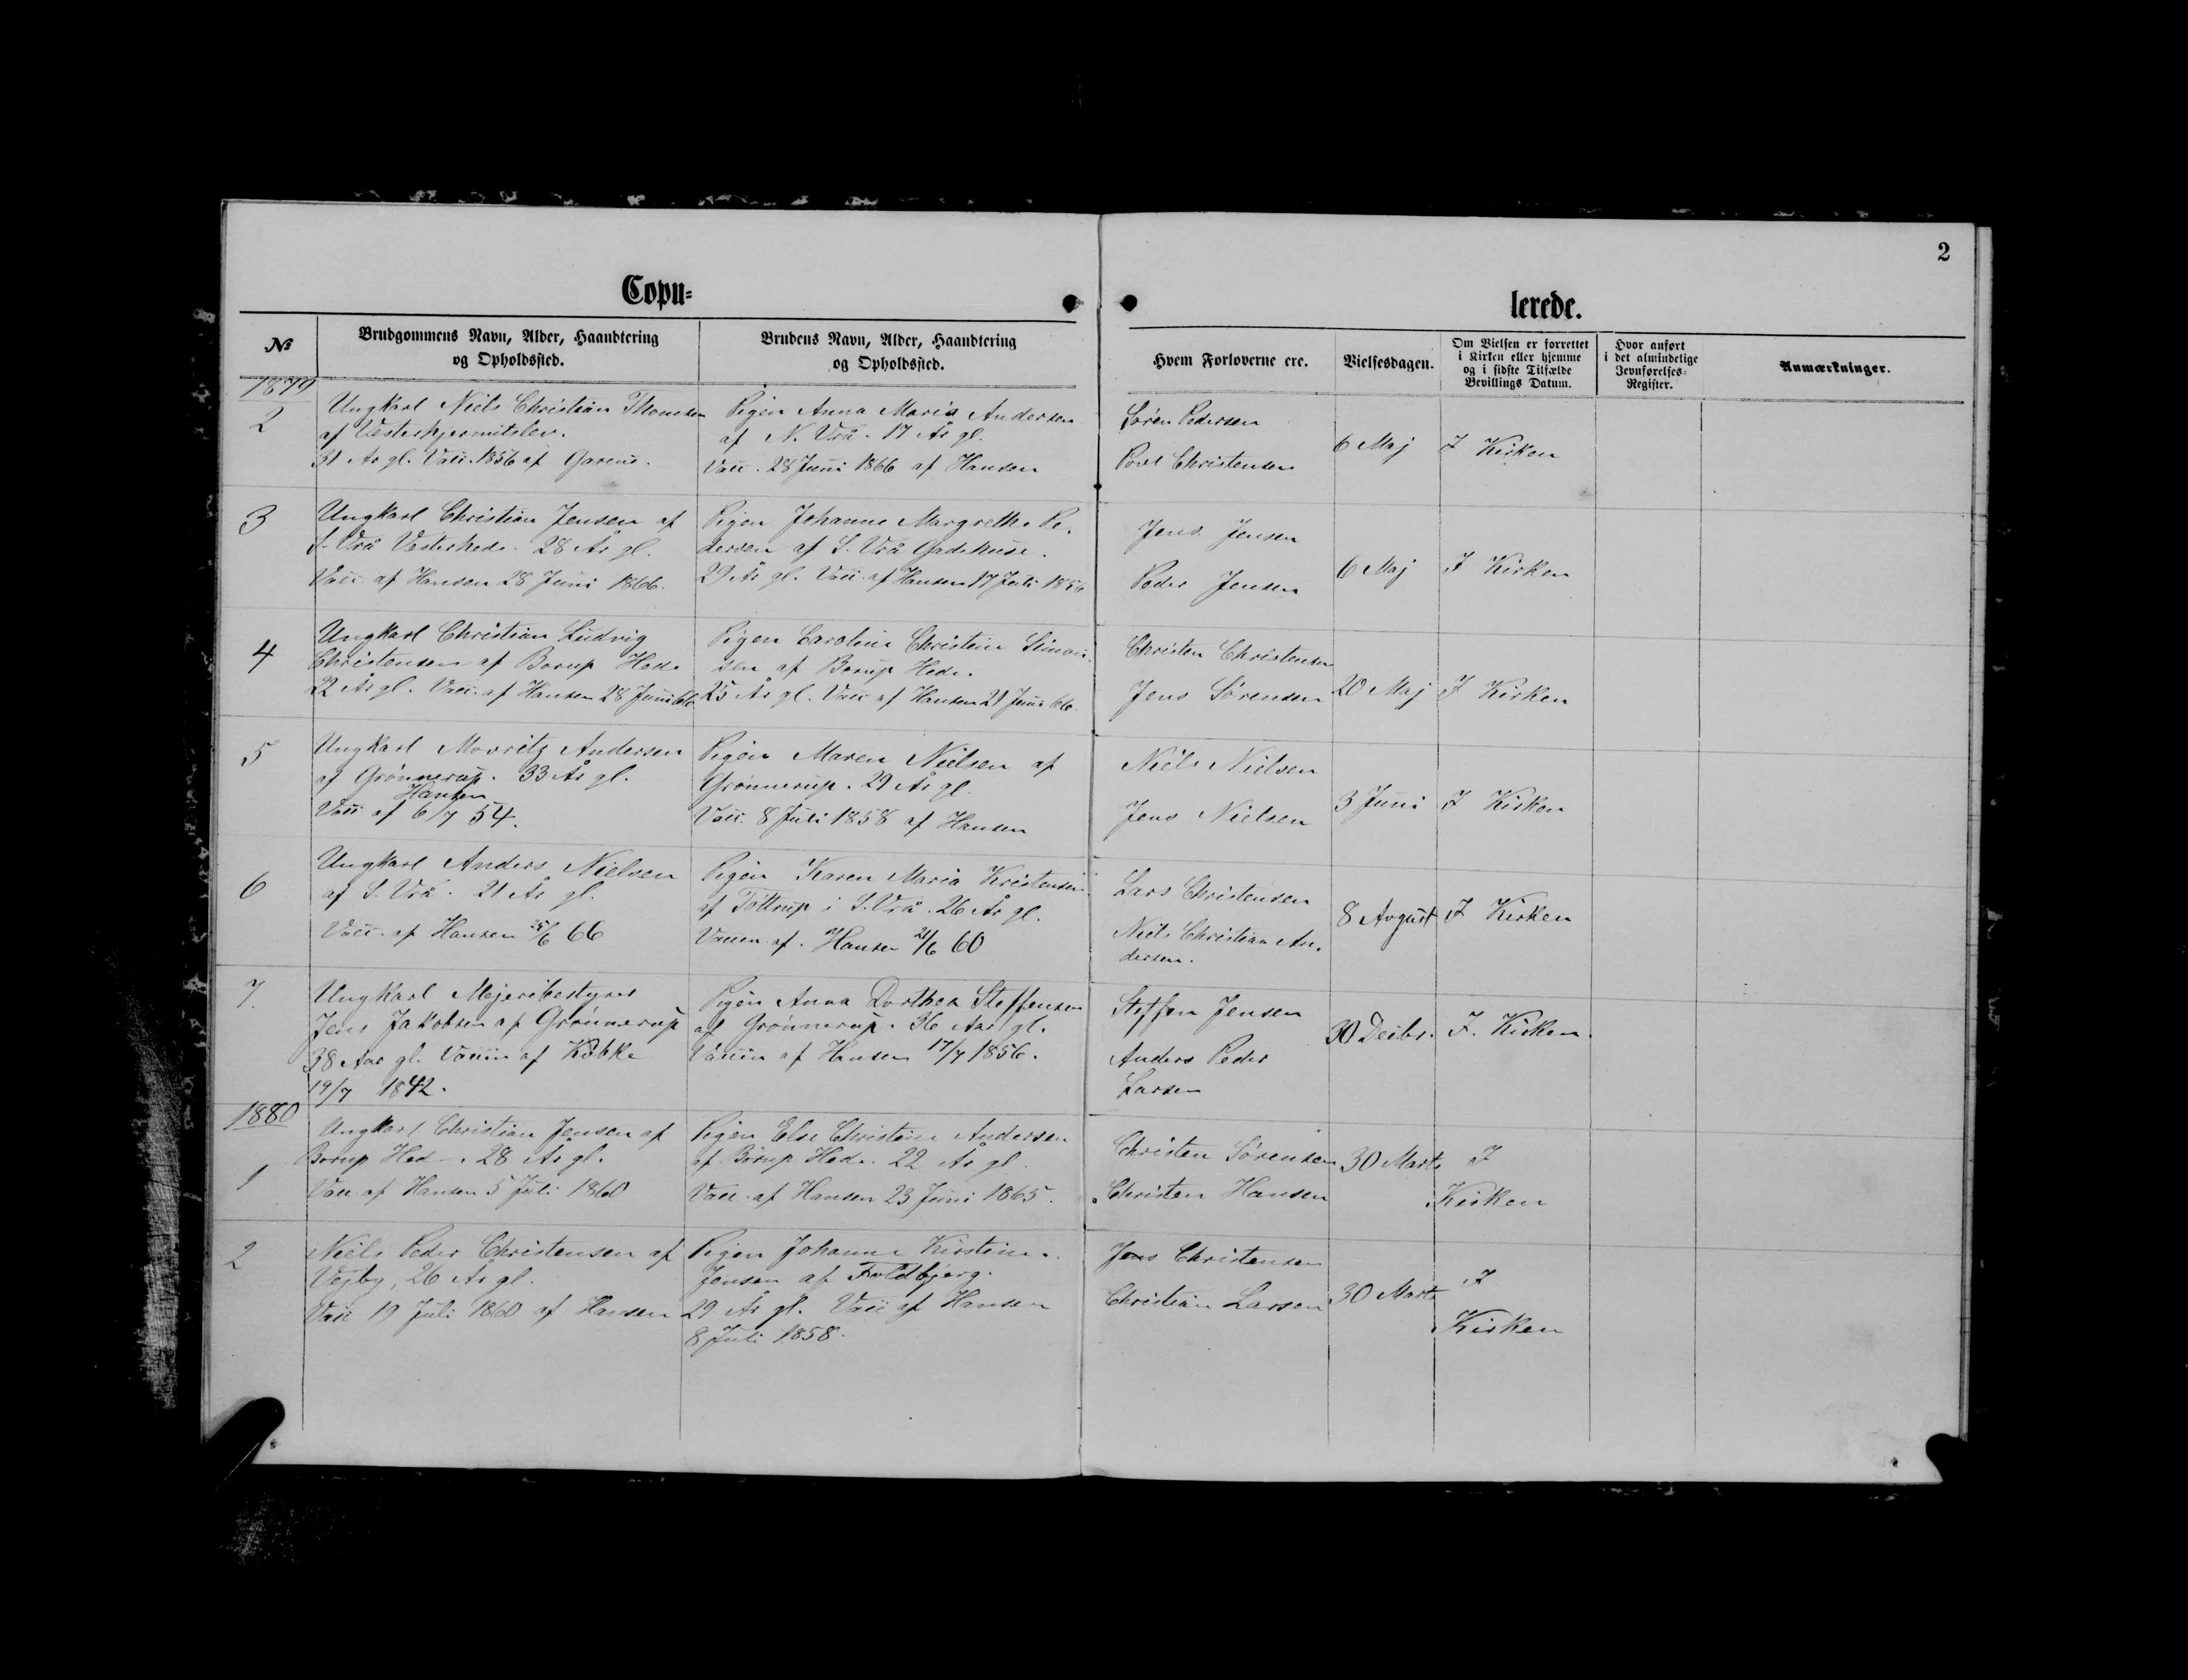 2
Copu=
lerede.
№
Brudgommens Navn, Alder, Haandtering
og Opholdssted.
Brudens Navn, Alder, Haandtering
og Opholdssted.
Hvem Forloverne ere.
Vielsesdagen.
Om Vielsen er forrettet
i Kirken eller hjemme
og i sidste Tilfælde
Bevillings Datum.
Hvor anført
i det almindelige
Jevnførelses=
Register.
Anmærkninger.
1879
2
Ungkarl Niels Christian Thomsen
af Vesterhjermitslev.
31 År gl. Vacc. 1856 af
Pigen Anna Maria Andersen
af N. Vrå. 17 År gl.
Vacc. 28 Juni 1866 af Hansen
Søren Pedersen
Povl Christensen
6 Maj
I Kirken
3
Ungkarl Christian Jensen af
S. Vrå Vesterhede. 28 År gl.
Vacc. af Hansen 28 Juni 1866.
Pigen Johanne Margrethe Pe-
dersen af S. Vrå Gadehuse.
29 År gl. Vacc. af Hansen 17 Juli 1856
Jens Jensen
Peder Jensen
6 Maj
I Kirken
4
Ungkarl Christian Ludvig
Christensen af Borup Hede
22 År gl. Vacc. af Hansen 28 Juni 66
Pigen Caroline Christine Simon-
sen af Borup Hede.
25 År gl. Vacc. af Hansen 21 Juni 66.
Christen Christensen
Jens Sörensen
20 Maj
I Kirken
5
Ungkarl Movritz Andersen
af Grönnerup. 33 År gl.
Hansen
Vacc af 6/7 54.
Pigen Maren Nielsen af
Grönnerup. 29 År gl.
Vacc. 8 Juli 1858 af Hansen
Niels Nielsen
Jens Nielsen
3 Juni
I Kirken
6
Ungkarl Anders Nielsen
af S. Vrå. 21 År gl.
Vacc. af Hansen /6 66
Pigen Karen Maria Kristensen
af Töttrup i S. Vrå. 26 År gl.
Vaccn. af. Hansen 21/6 60
Lars Christensen
Niels Christian An-
dersen.
8 Avgust
I Kirken
7
Ungkarl Mejeribestyrer
Jens Jakobsen af Grönnerup
38 Aar gl. Vaccin af Köbke
19/7 1842.
Pigen Anna Dorthea Steffensen
af Grönnerup. 36 Aar gl.
Vaccin af Hansen 17/7 1856.
Steffen Jensen
Anders Peder
Larsen
30 Decbr.
I. Kirken.
1880
1
Ungkarl Christian Jensen af
Borup Hede. 28 År gl.
Vacc af Hansen 5 Juli 1860
Pigen Else Christine Andersen
af Börup Hede. 22 År gl.
Vacc. af Hansen 23 Juni 1865.
Christen Sörensen
Christen Hansen
30 Marts
I
Kirken
2
Niels Peder Christensen af
Vejby, 26 År gl.
Vacc 19 Juli 1860 af Hansen
Pigen Johanne Kirstine
Jensen af Foldbjerg.
29 År gl. Vacc af Hansen
8 Juli 1858.
Jens Christensen
Christian Larsen
30 Marts
I
Kirken